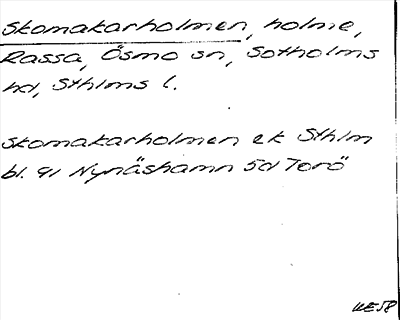 Skomakarholmen, holme,
Rassa, Ösmo sn, Sotholms
hd, Sthlms l.
Skomakarholmen ek Sthlm
bl. 91 Nynäshamn 5d Torö
KE58